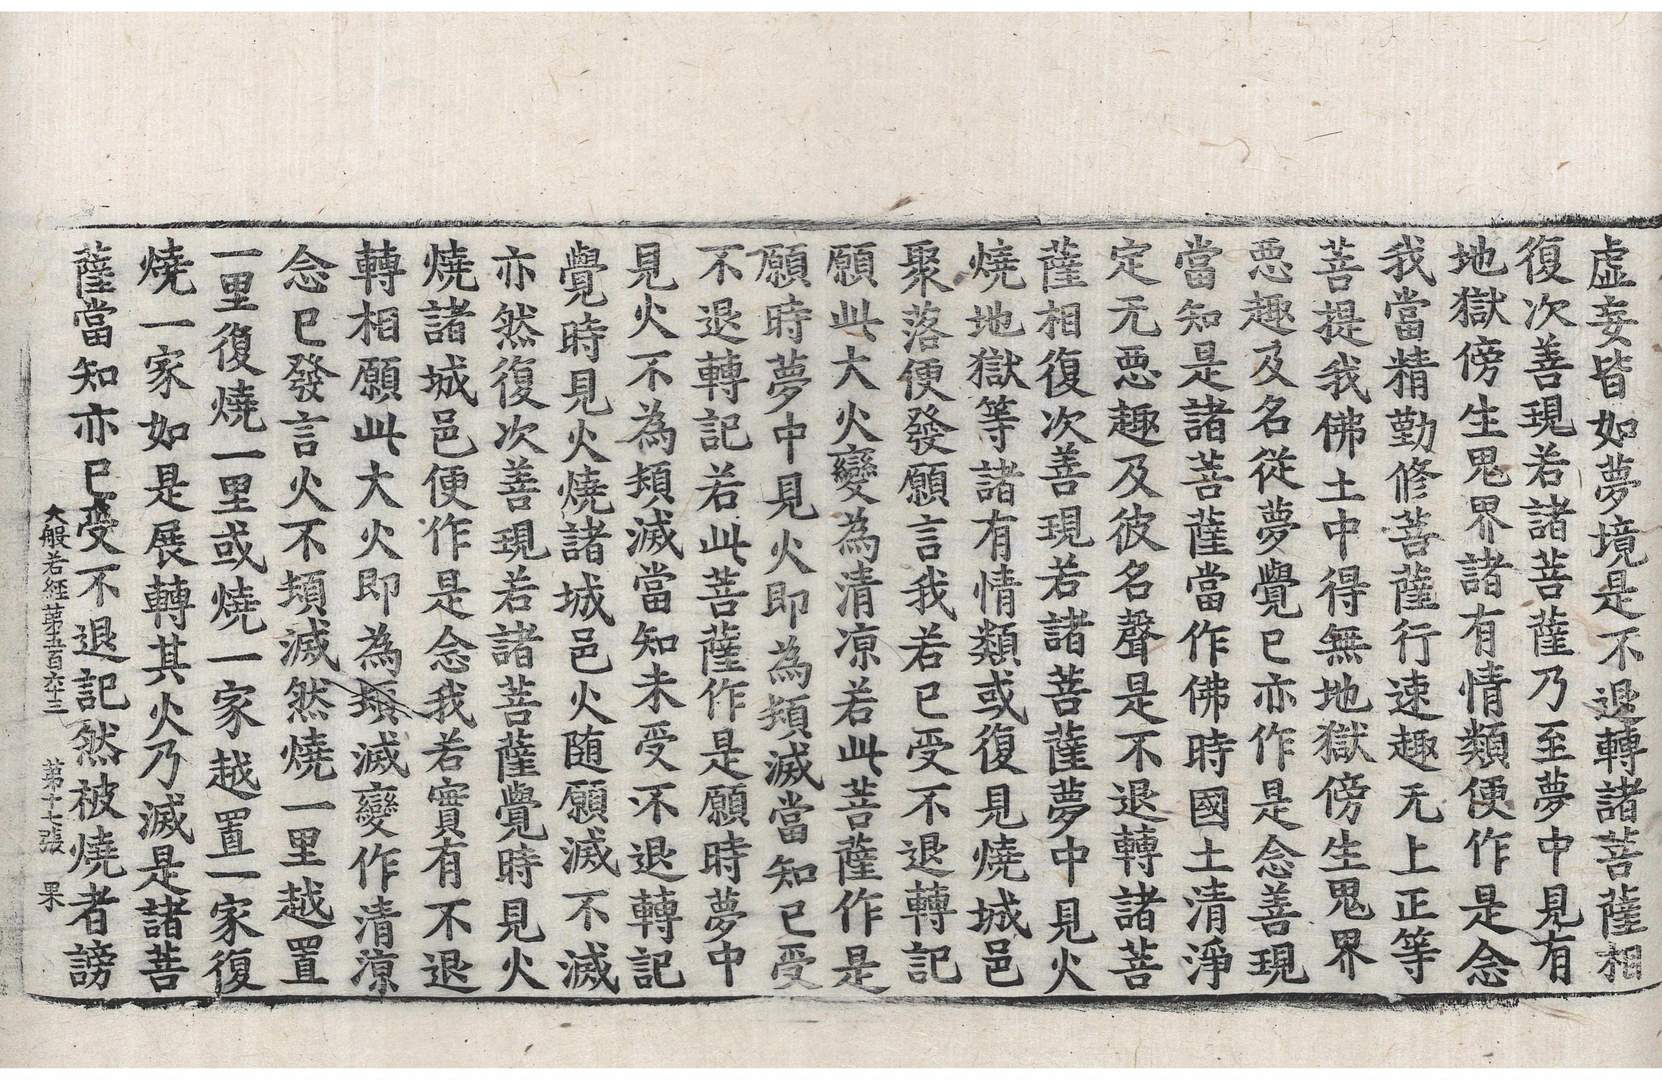 虛妄皆如夢境是不退轉諸菩薩相
復次善現若諸菩薩乃至夢中見有
地獄傍生鬼界諸有情類便作是念
我當精勤修菩薩行速趣无上正等
菩提我佛土中得無地獄傍生鬼界
惡趣及名從夢覺已亦作是念善現
當知是諸菩薩當作佛時國土清淨
定无惡趣及彼名聲是不退轉諸菩
薩相復次善現若諸菩薩夢中見火
燒地獄等諸有情類或復見燒城邑
聚落便發願言我若已受不退轉記
願此大火變為清凉若此菩薩作是
願時夢中見火即為頓滅當知已受
不退轉記若此菩薩作是願時夢中
見火不為頓滅當知未受不退轉記
覺時見火燒諸城邑火隨願滅不滅
亦然復次善現若諸菩薩覺時見火
燒諸城邑便作是念我若實有不退
轉相願此大火即為頓滅變作清涼
念已發言火不頓滅然燒一里越置
一里復燒一里或燒一家越置一家復
燒一家如是展轉其火乃滅是諸菩
薩當知亦已受不退記然被燒者謗
大般若經第五百六十三 第十七張 果